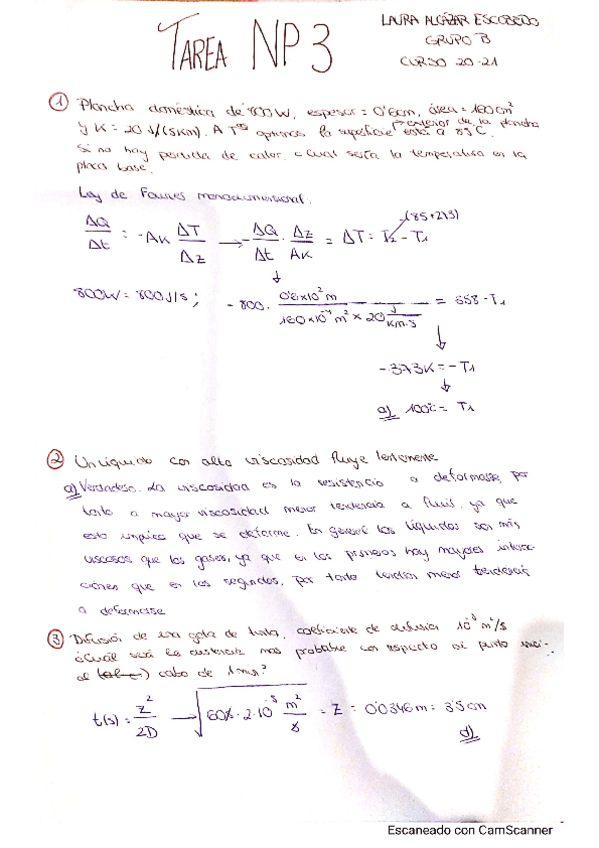 TAREA NP 3
LAURA ALCÁZAR ESCOBEDO
GRUPO B
CURSO 20-21
① Plancha doméstica de 800W, espesor = 0'6cm, área = 160cm²
y K = 20 J/(SKm). A Tª óptima la superficie exterior de la plancha está a 85°C.
Si no hay perdida de calor. ¿Cual sería la temperatura en la
placa base.
Ley de Fourier monodimensional.
ΔQ/Δt = -AK ΔT/ΔZ → -ΔQ/Δt · ΔZ/AK = ΔT = T₂ - T₁
(85+273)
800W = 800J/s ; -800 · 0'6×10⁻²m / 160×10⁻⁴m² × 20 J/Km·S = 358 - T₁
-373K = -T₁
a) 100°C = T₁
② Un líquido con alta viscosidad fluye lentamente
a) Verdadero. La viscosidad es la resistencia a deformarse, por
tanto a mayor viscosidad menor tendencia a fluir, ya que
esto implica que se deforme. En general los líquidos son más
viscosos que los gases, ya que en los primeros hay mayores interac-
ciones que en los segundos, por tanto tendrán menor tendencia
a deformarse
③ Difusión de una gota de tinta, coeficiente de difusión 10⁻⁵ m²/s
¿Cual será la distancia más probable con respecto al punto inici-
al cabo de 1 min?
t(s) = Z²/2D → √60s · 2 · 10⁻⁵ m²/s = Z = 0'0346m = 3'5cm
d)
Escaneado con CamScanner